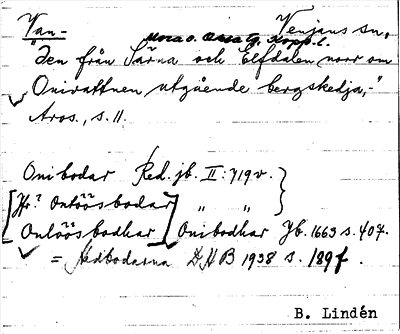 Van- Venjans sn,
Mora o. Orsa tg, Kopp. l.
"Den från Särna och Elfdalen norr om
Onivattnen utgående bergskedja,-"
Aros., s. 11.
Onibodar Red. jb. II: 719 v. }
[Jfr? Onlöösbodar] " " }
[Onlöösbodhar] Onibodhar Jb. 1663 s. 407.
= bodarna DHB 1938 s. 189 f.
B. Lindén